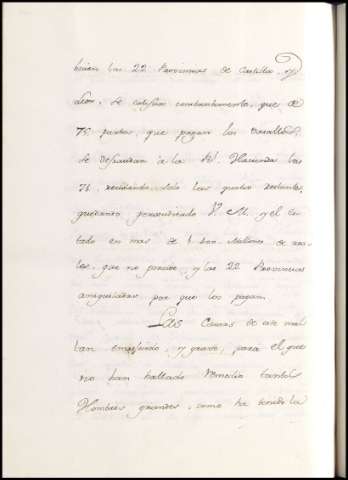 hacian las 22 Provincias de Castilla, y
Leon, de calificar constantemente, que de
75 partes, que pagan los Vasallos,
se defraudan à la Rl. Hacienda las
71, recibiendo solo las quatro restantes,
quedando perjudicado V. M. y el Es-
tado en mas de Millones de rea-
les, que no percibe, y las 22 Provincias
aniquiladas, por que los pagan.
Las Causas de este mal
tan envejecido, y grave, para el que
no han hallado remedio tantos
Hombres grandes, como ha tenido la